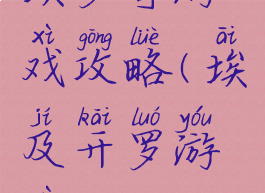 xì gōng lüè āi
戏攻略(埃
jí kāi luó yóu
及开罗游